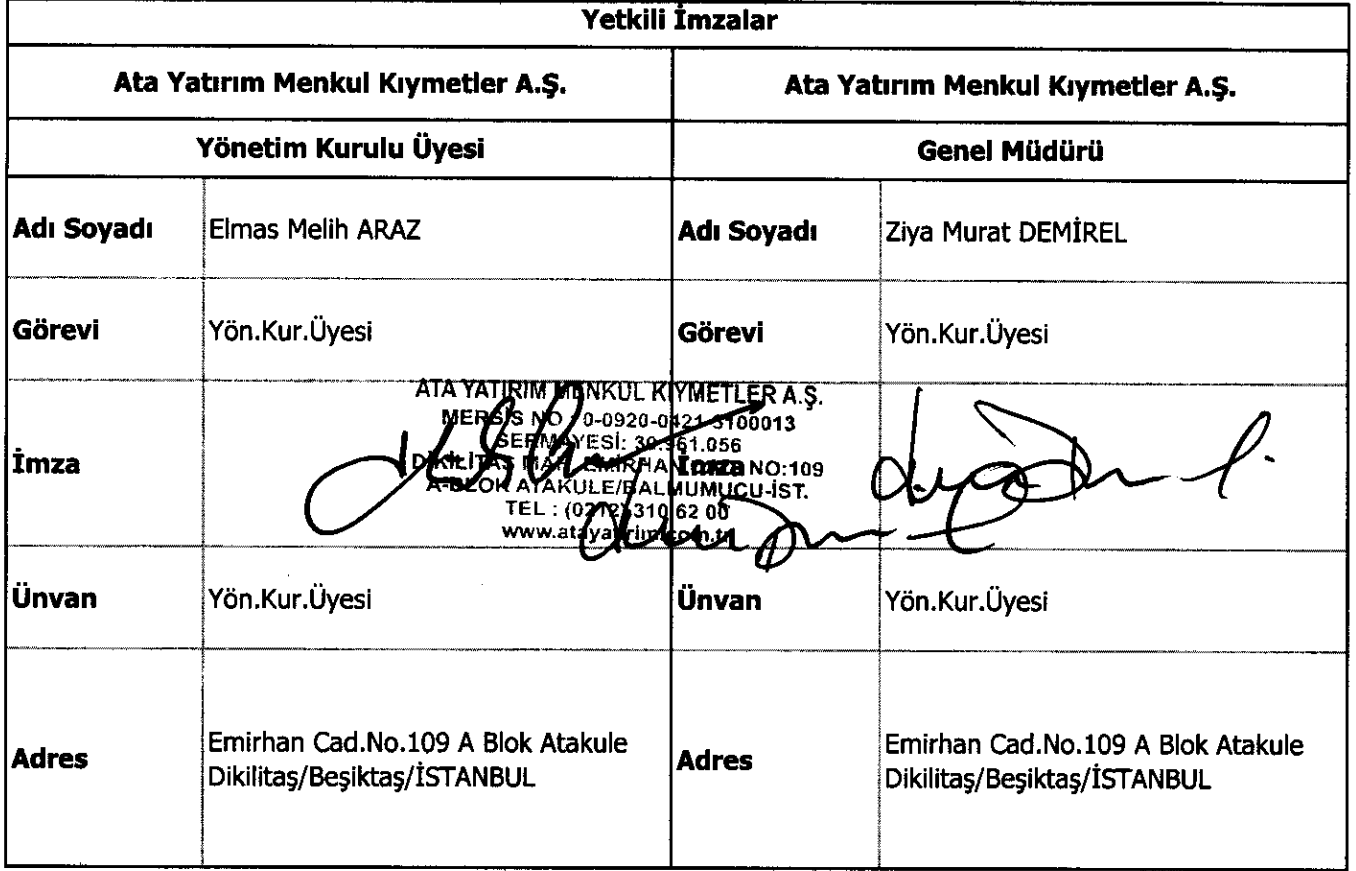 Yetkili İmzalar
Ata Yatırım Menkul Kıymetler A.Ş.
Ata Yatırım Menkul Kıymetler A.Ş.
Yönetim Kurulu Üyesi
Genel Müdürü
Adı Soyadı
Elmas Melih ARAZ
Adı Soyadı
Ziya Murat DEMİREL
Görevi
Yön.Kur.Üyesi
Görevi
Yön.Kur.Üyesi
İmza
ATA YATIRIM MENKUL KIYMETLER A.Ş.
MERSİS NO 0-0920-0421-3100013
SERMAYESİ: 30.961.056
DİKİLİTAŞ MAH. EMİRHAN NO:109
A-BLOK ATAKULE/BALMUMUCU-İST.
TEL : (0212) 310 62 00
www.atayatirim.com.tr
İmza
Ünvan
Yön.Kur.Üyesi
Ünvan
Yön.Kur.Üyesi
Adres
Emirhan Cad.No.109 A Blok Atakule
Dikilitaş/Beşiktaş/İSTANBUL
Adres
Emirhan Cad.No.109 A Blok Atakule
Dikilitaş/Beşiktaş/İSTANBUL